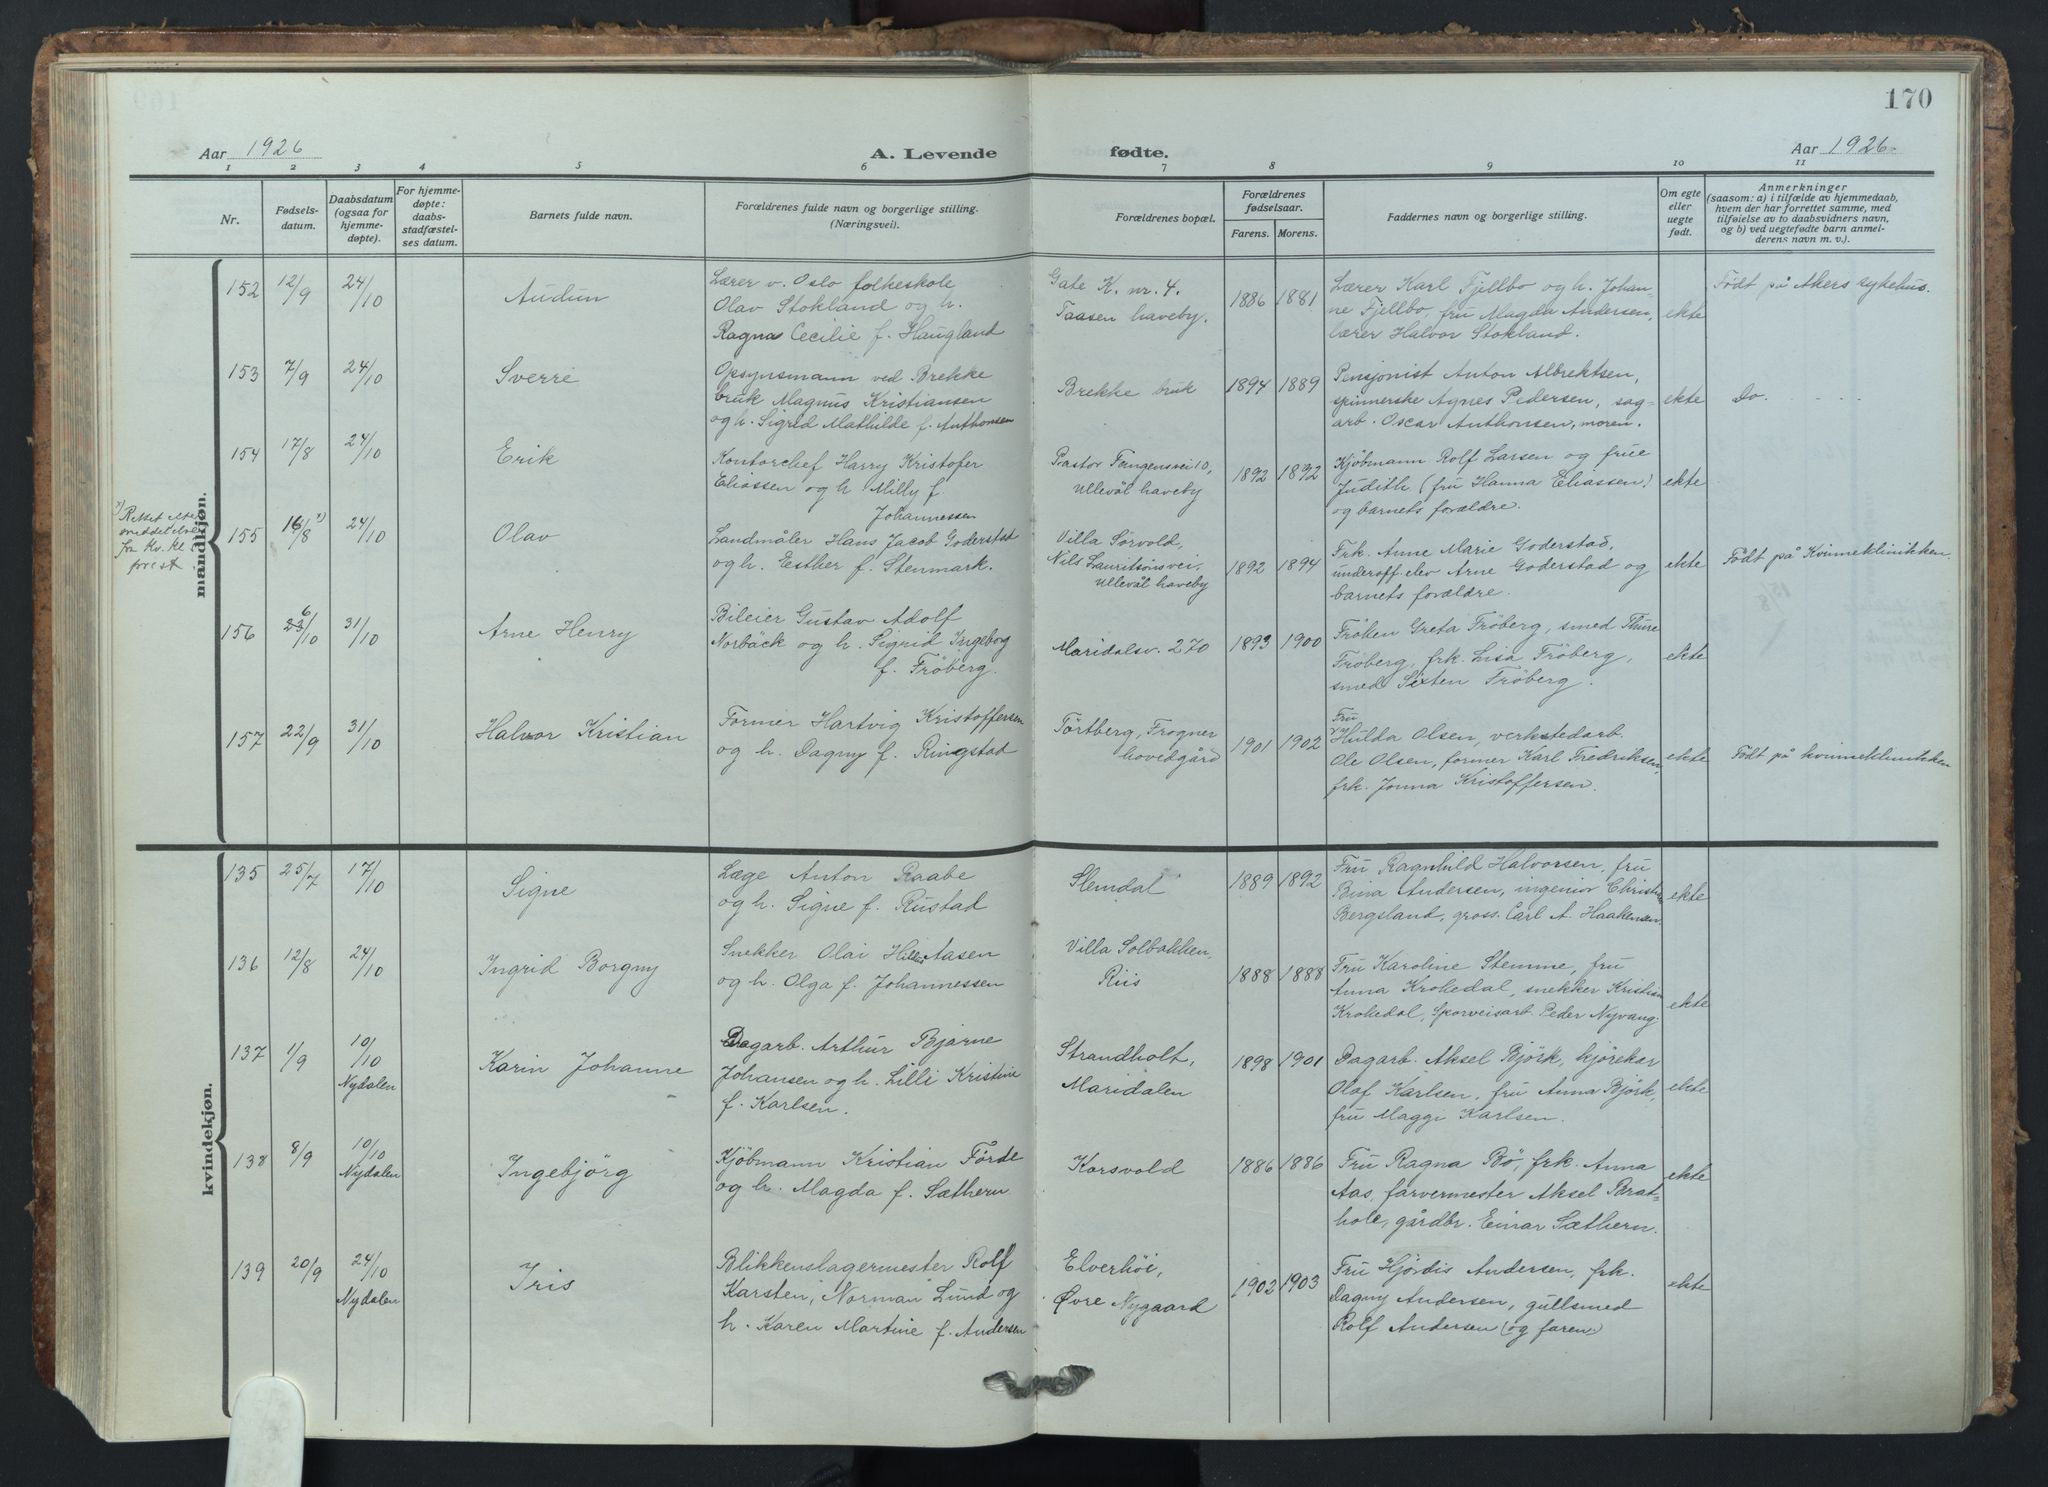 170
Aar 1926
A. Levende fødte.
Aar 1926
1 2 3 4 5 6 7 8 9 10 11
Nr.
Fødsels-
datum.
Daabsdatum
(ogsaa for
hjemme-
døpte).
For hjemme-
døpte:
daabs-
stadfæstel-
ses datum.
Barnets fulde navn.
Forældrenes fulde navn og borgerlige stilling.
(Næringsvei).
Forældrenes bopæl.
Forældrenes
fødselsaar.
Farens. Morens.
Faddernes navn og borgerlige stilling.
Om egte
eller
uegte
født.
Anmerkninger
(saasom: a) i tilfælde av hjemmedaab,
hvem der har forrettet samme, med
tilføielse av to daabsvidners navn,
og b) ved uegtefødte barn anmel-
derens navn m. v.).
mandkjøn.
152 12/9 24/10 Audun
Lærer v. Oslo folkeskole
Olav Stokland og h.
Ragna Cecilie f. Haugland
Gate K. nr. 4.
Taasen haveby.
1886 1881
Lærer Karl Fjellbo og h. Johan-
ne Fjellbo, fru Magda Andersen,
lærer Halvor Stokland.
ekte
Født på Akers sykehus.
153 7/9 24/10 Sverre
Opsynsmann ved Brekke
bruk Magnus Kristiansen
og h. Sigrid Mathilde f. Anthonsen
Brekke bruk
1894 1889
Pensjonist Anton Albrektsen,
spinnerske Agnes Pedersen, sag-
arb. Oscar Anthonsen, moren.
ekte
Do.
154 17/8 24/10 Erik
Kontorchef Harry Kristofer
Eliassen og h. Milly f.
Johannessen
Pastor Fangensvei 10,
Ullevål haveby
1892 1892
Kjøbmann Rolf Larsen og frue
Judith (fru Hanna Eliassen)
og barnets forældre.
ekte
155 16/8 24/10 Olav
Landmåler Hans Jacob Goderstad
og h. Esther f. Stenmark.
Villa Sørvold,
Nils Lauritsønsvei,
Ullevål haveby
1892 1894
Frk. Anne Marie Goderstad,
underoff. elev Arne Goderstad og
barnets forældre.
ekte
Født på Kvinneklinikken.
156 6 23/10 31/10 Arne Henry
Bileier Gustav Adolf
Norbäck og h. Sigrid Ingeborg
f. Fröberg.
Maridalsv. 270
1893 1900
Frøken Greta Fröberg, smed Thure
Fröberg, frk. Lisa Fröberg,
smed Sixten Fröberg.
ekte
157 22/9 31/10 Halvor Kristian
Former Hartvig Kristoffersen
og h. Dagny f. Ringstad
Tørtberg, Frogner
hovedgård
1901 1902
Fru
Hulda Olsen, verkstedarb.
Ole Olsen, former Karl Fredriksen,
frk. Jonna Kristoffersen.
ekte
Født på kvinneklinikken
kvindekjøn.
135 25/7 17/10 Signe
Læge Anton Raabe
og h. Signe f. Rustad
Slemdal
1889 1892
Fru Ragnhild Halvorsen, fru
Bina Andersen, ingeniør Christian
Bergsland, gross. Carl A. Haakensen.
ekte
136 12/8 24/10 Ingrid Borgny
Snekker Olai Aasen
og h. Olga f. Johannessen
Villa Solbakken,
Riis
1888 1888
Fru Karoline Stemme, fru
Anna Krokedal, snekker Kristian
Krokedal, sporveisarb. Peder Nyvang.
ekte
137 1/9 10/10 Nydalen Karin Johanne
Dagarb. Arthur Bjarne
Johansen og h. Lilli Kristine
f. Karlsen.
Strandholt,
Maridalen
1898 1901
Dagarb. Aksel Bjørk, kjørekar
Olaf Karlsen, fru Anna Bjørk,
fru Maggi Karlsen.
ekte
138 8/9 10/10 Nydalen Ingebjörg
Kjöbmann Kristian Förde
og h. Magda f. Sæthern
Korsvold
1886 1886
Fru Ragna Bö, frk. Anna
Aas, farvermester Aksel Brat-
hole, gårdbr. Einar Sæthern.
ekte
139 20/9 24/10 Nydalen Iris
Blikkenslagermester Rolf
Karsten, Norman Lund og
h. Karen Martine f. Andersen
Elverhöi,
Øvre Nygaard
1902 1903
Fru Hjördis Andersen, frk.
Dagny Andersen, gullsmed
Rolf Andersen (og faren)
ekte